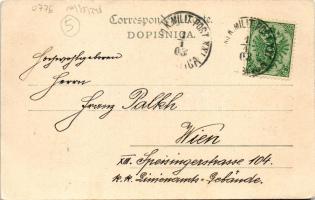 0776
5
Correspondenz-Karte.
DOPISNICA.
K.u.K. MILIT. POST XXI
Hochwohlgeboren
Herrn
Franz Palkh
Wien
XIII. Speisingerstrasse 104.
k. k. Linienamts-Gebäude.